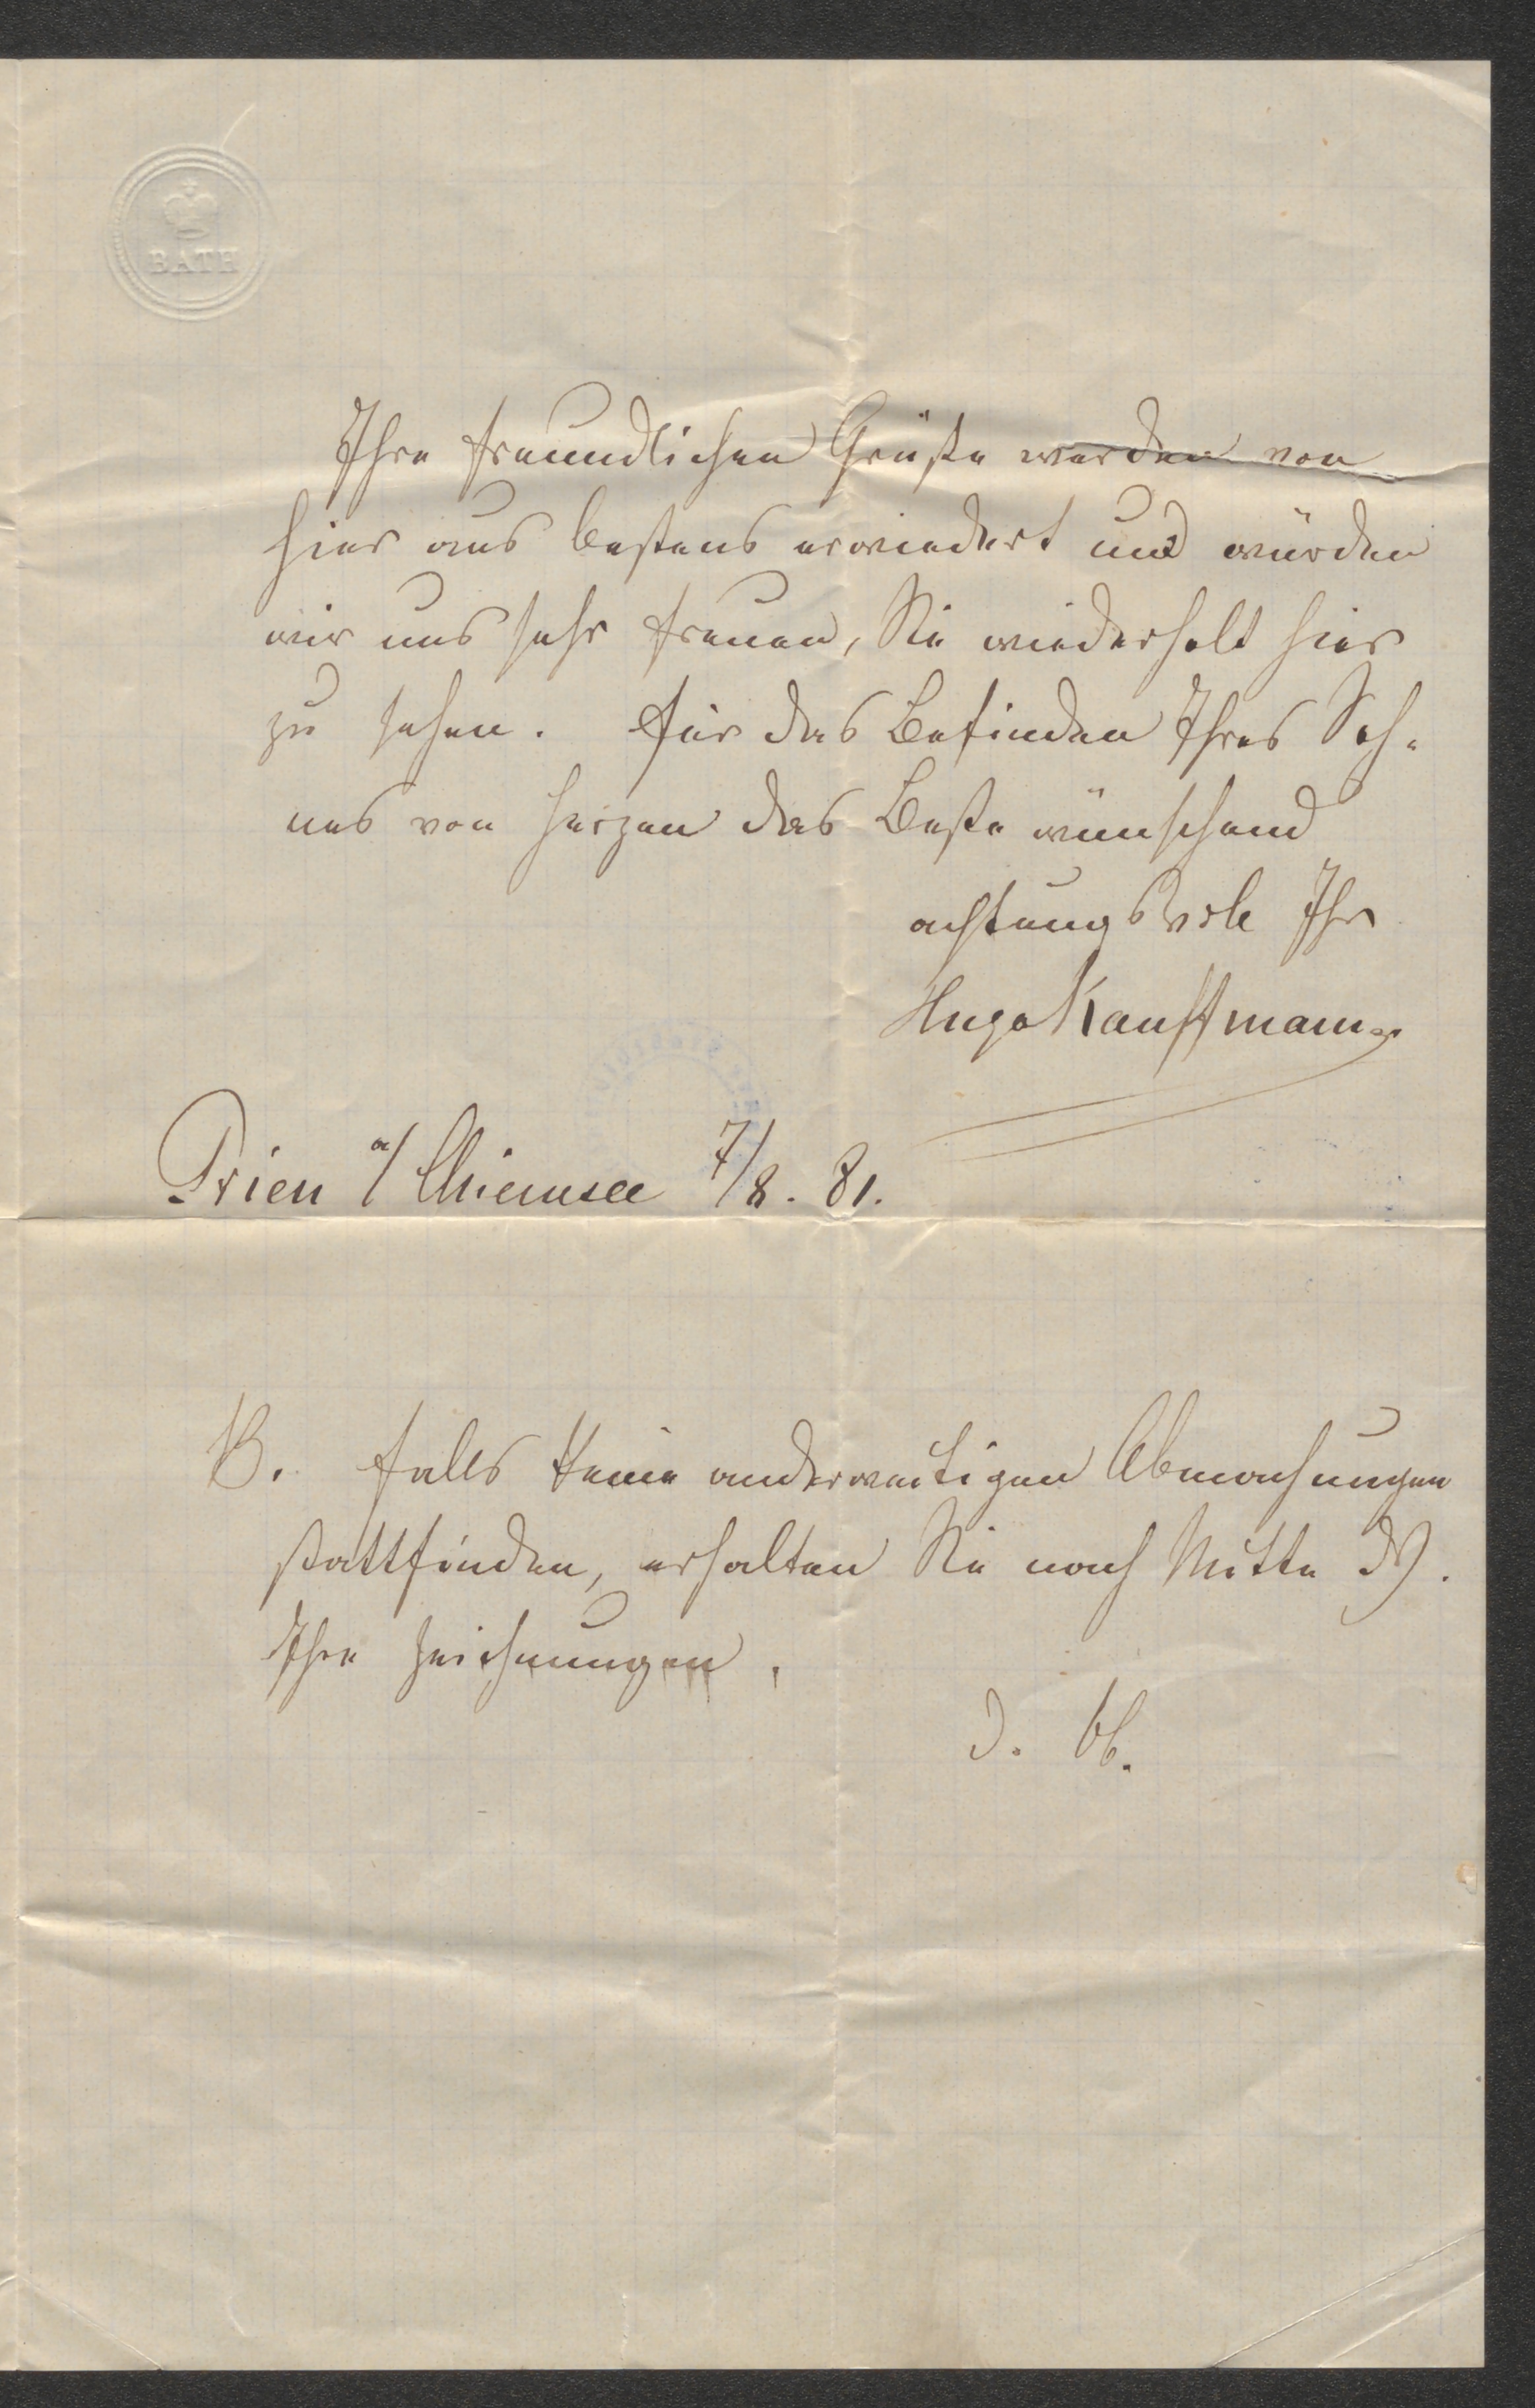 BATH
Ihre freundlichen Grüße werden von
hier aus bestens erwiedert und würden
wir uns sehr freuen, Sie wiederholt hier
zu sehen. Für das Befinden Ihres Soh-
nes von Herzen das Beste wünschend
achtungsvoll Ihr
Hugo Kauffmann.
Prien a/ Chiemsee 7/8. 81.
NB. Falls keine anderweitigen Abmachungen
stattfinden, erhalten Sie nach Mitte
Ihre Zeichnungen.
D. Ob.